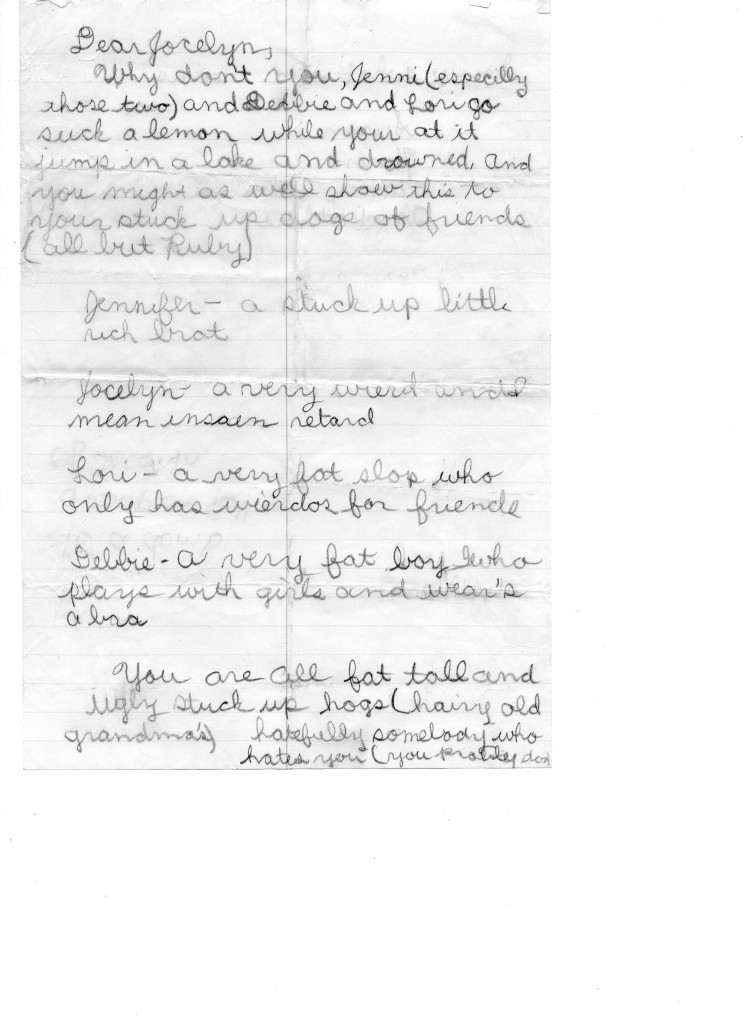 Dear Jocelyn,
Why don't you, Jenni (especilly
those two) and Debbie and Lori go
suck a lemon while your at it
jump in a lake and drowned, and
you might as well show this to
your stuck up dogs of friends
(all but Ruby)
Jennifer - a stuck up little
rich brat
Jocelyn - a very wierd and
mean insaen retard
Lori - a very fat slop who
only has wierdos for friends
Debbie - a very fat boy who
plays with girls and wear's
a bra
You are all fat tall and
ugly stuck up hogs (hairy old
grandma's) hatefully somebody who
hates you (you